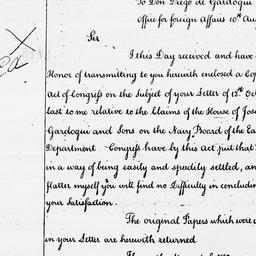 To Don Diego de Gardoqui
Office for foreign Affairs 10th Au
Sir
I this Day received and have
Honor of transmitting to you herewith enclosed a Cop
Act of Congress on the Subject of your Letter of 12th Oc
last to me relative to the Claims of the House of Jose
Gardoqui and Sons on the Navy Board of the Ea
Department. Congress have by this Act put that
in a way of being easily and speedily settled, an
flatter myself you will find no Difficulty in concludin
your Satisfaction.
The original Papers which were
in your Letter are herewith returned